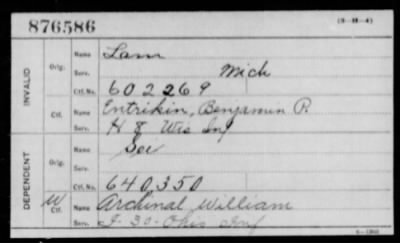 876586
(3-
INVALID
Orig.
Name Lam
Serv. Mich
Ctf. No. 602269
Ctf.
Name Entrikin, Benjamin P.
Serv. H 8 Wis Inf
DEPENDENT
Orig.
Name
Serv.
Ctf. No. 640,350
W
Ctf.
Name Archinal William
Serv. I-30-Ohio Inf